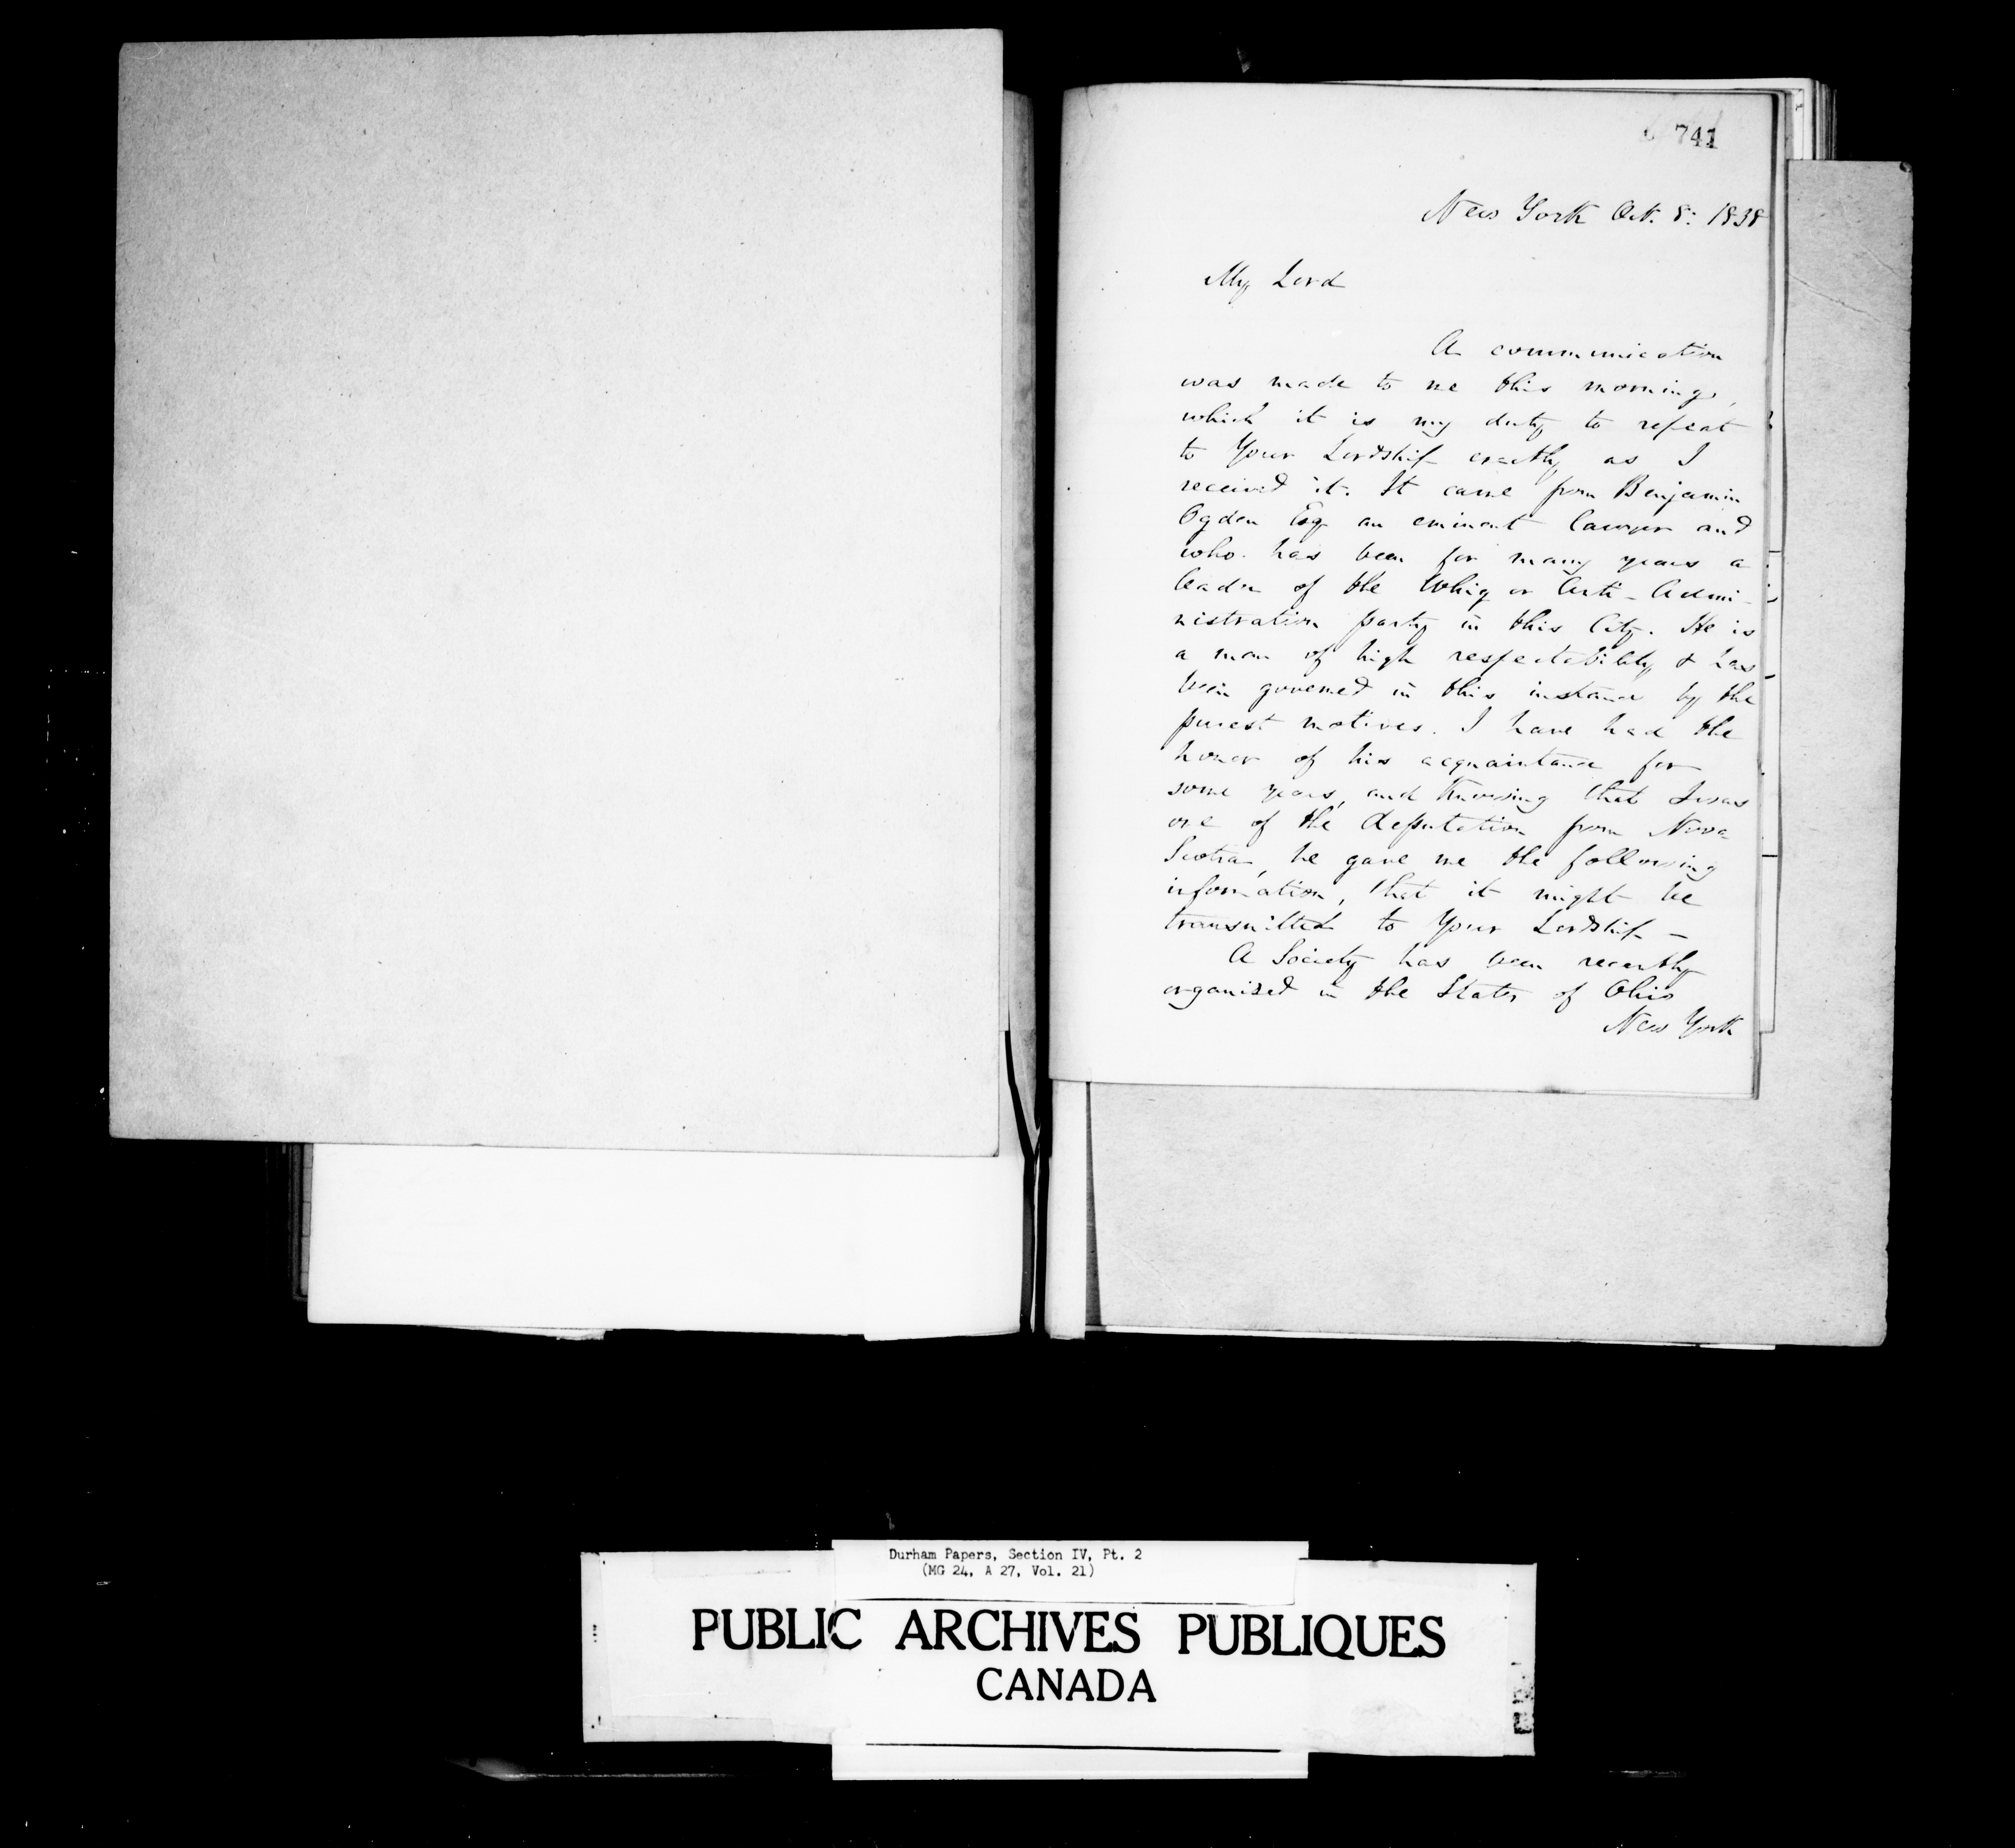 741
New York Oct. 8: 1838
My Lord
A communication
was made to me this morning,
which it is my duty to repeat
to Your Lordship exactly as I
received it. It came from Benjamin
Ogden Esq an eminent lawyer and
who has been for many years a
leader of the Whig or Anti-Admi-
nistration party in this City. He is
a man of high respectability & has
been governed in this instance by the
purest motives. I have had the
honor of his acquaintance for
some years, and knowing that I was
one of the deputation from Nova
Scotia, he gave me the following
information, that it might be
transmitted to Your Lordship —
A Society has been recently
organized in the States of Ohio
New York
Durham Papers, Section IV, Pt. 2
(MG 24, A 27, Vol. 21)
PUBLIC ARCHIVES PUBLIQUES
CANADA